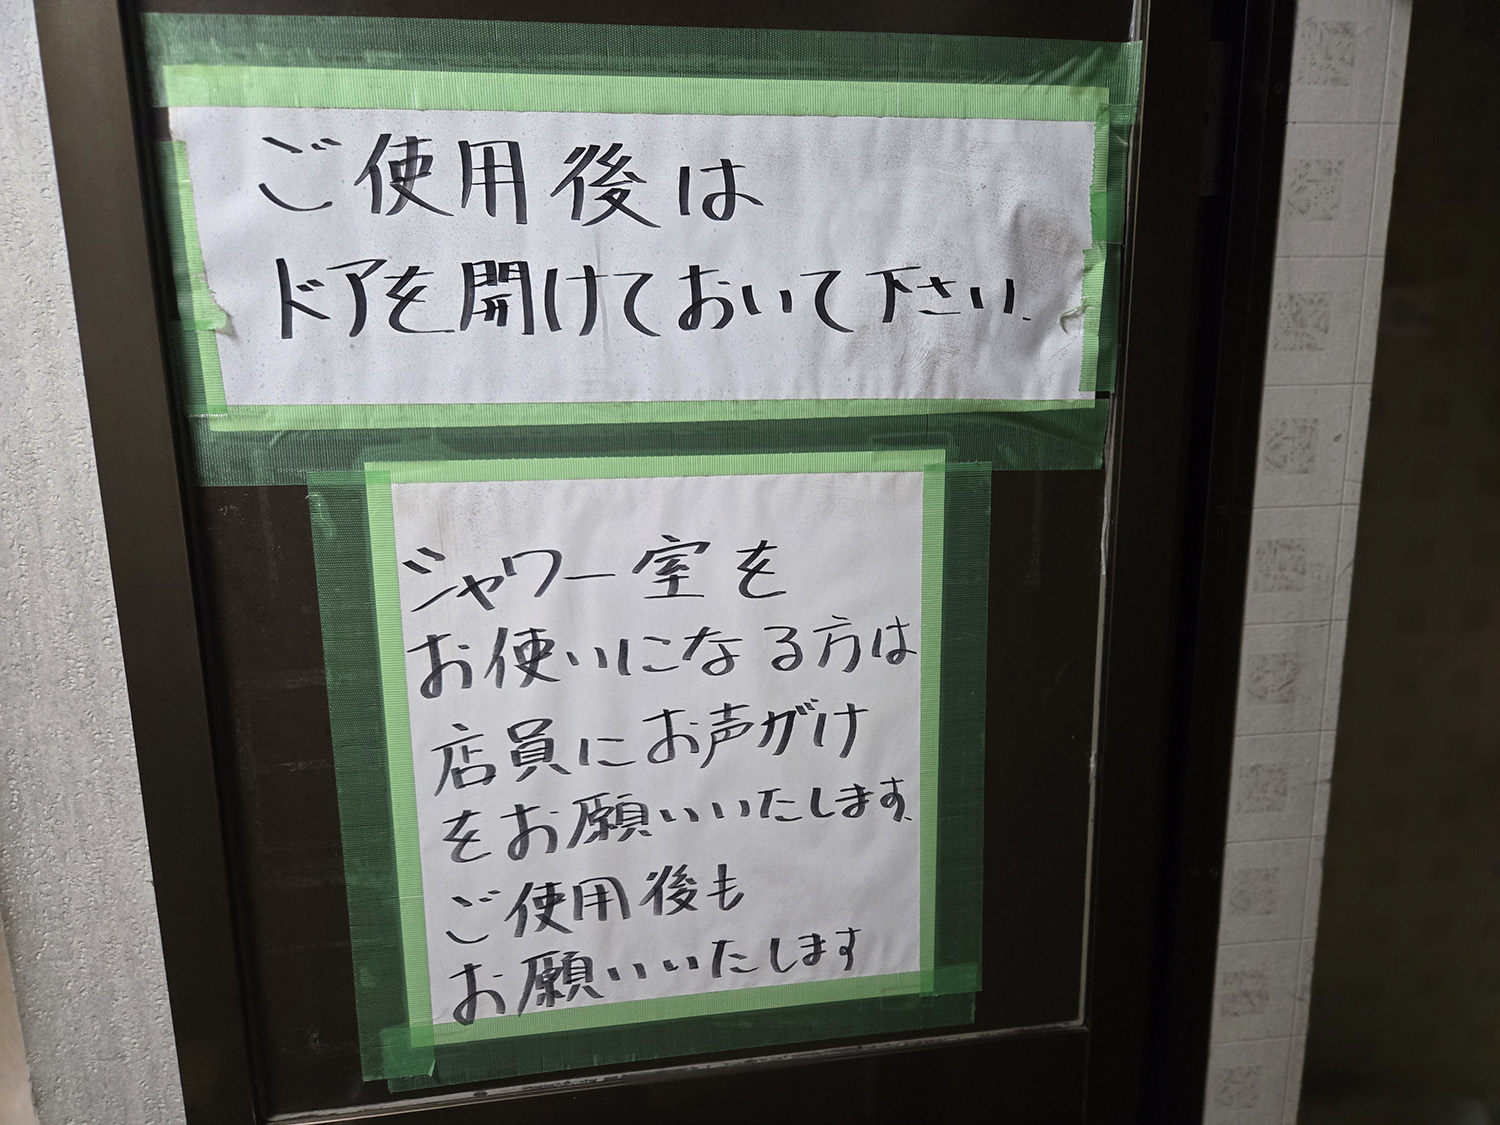 ご使用後は
ドアを開けておいて下さい.
シャワー室を
お使いになる方は
店員にお声がけ
をお願いいたします.
ご使用後も
お願いいたします